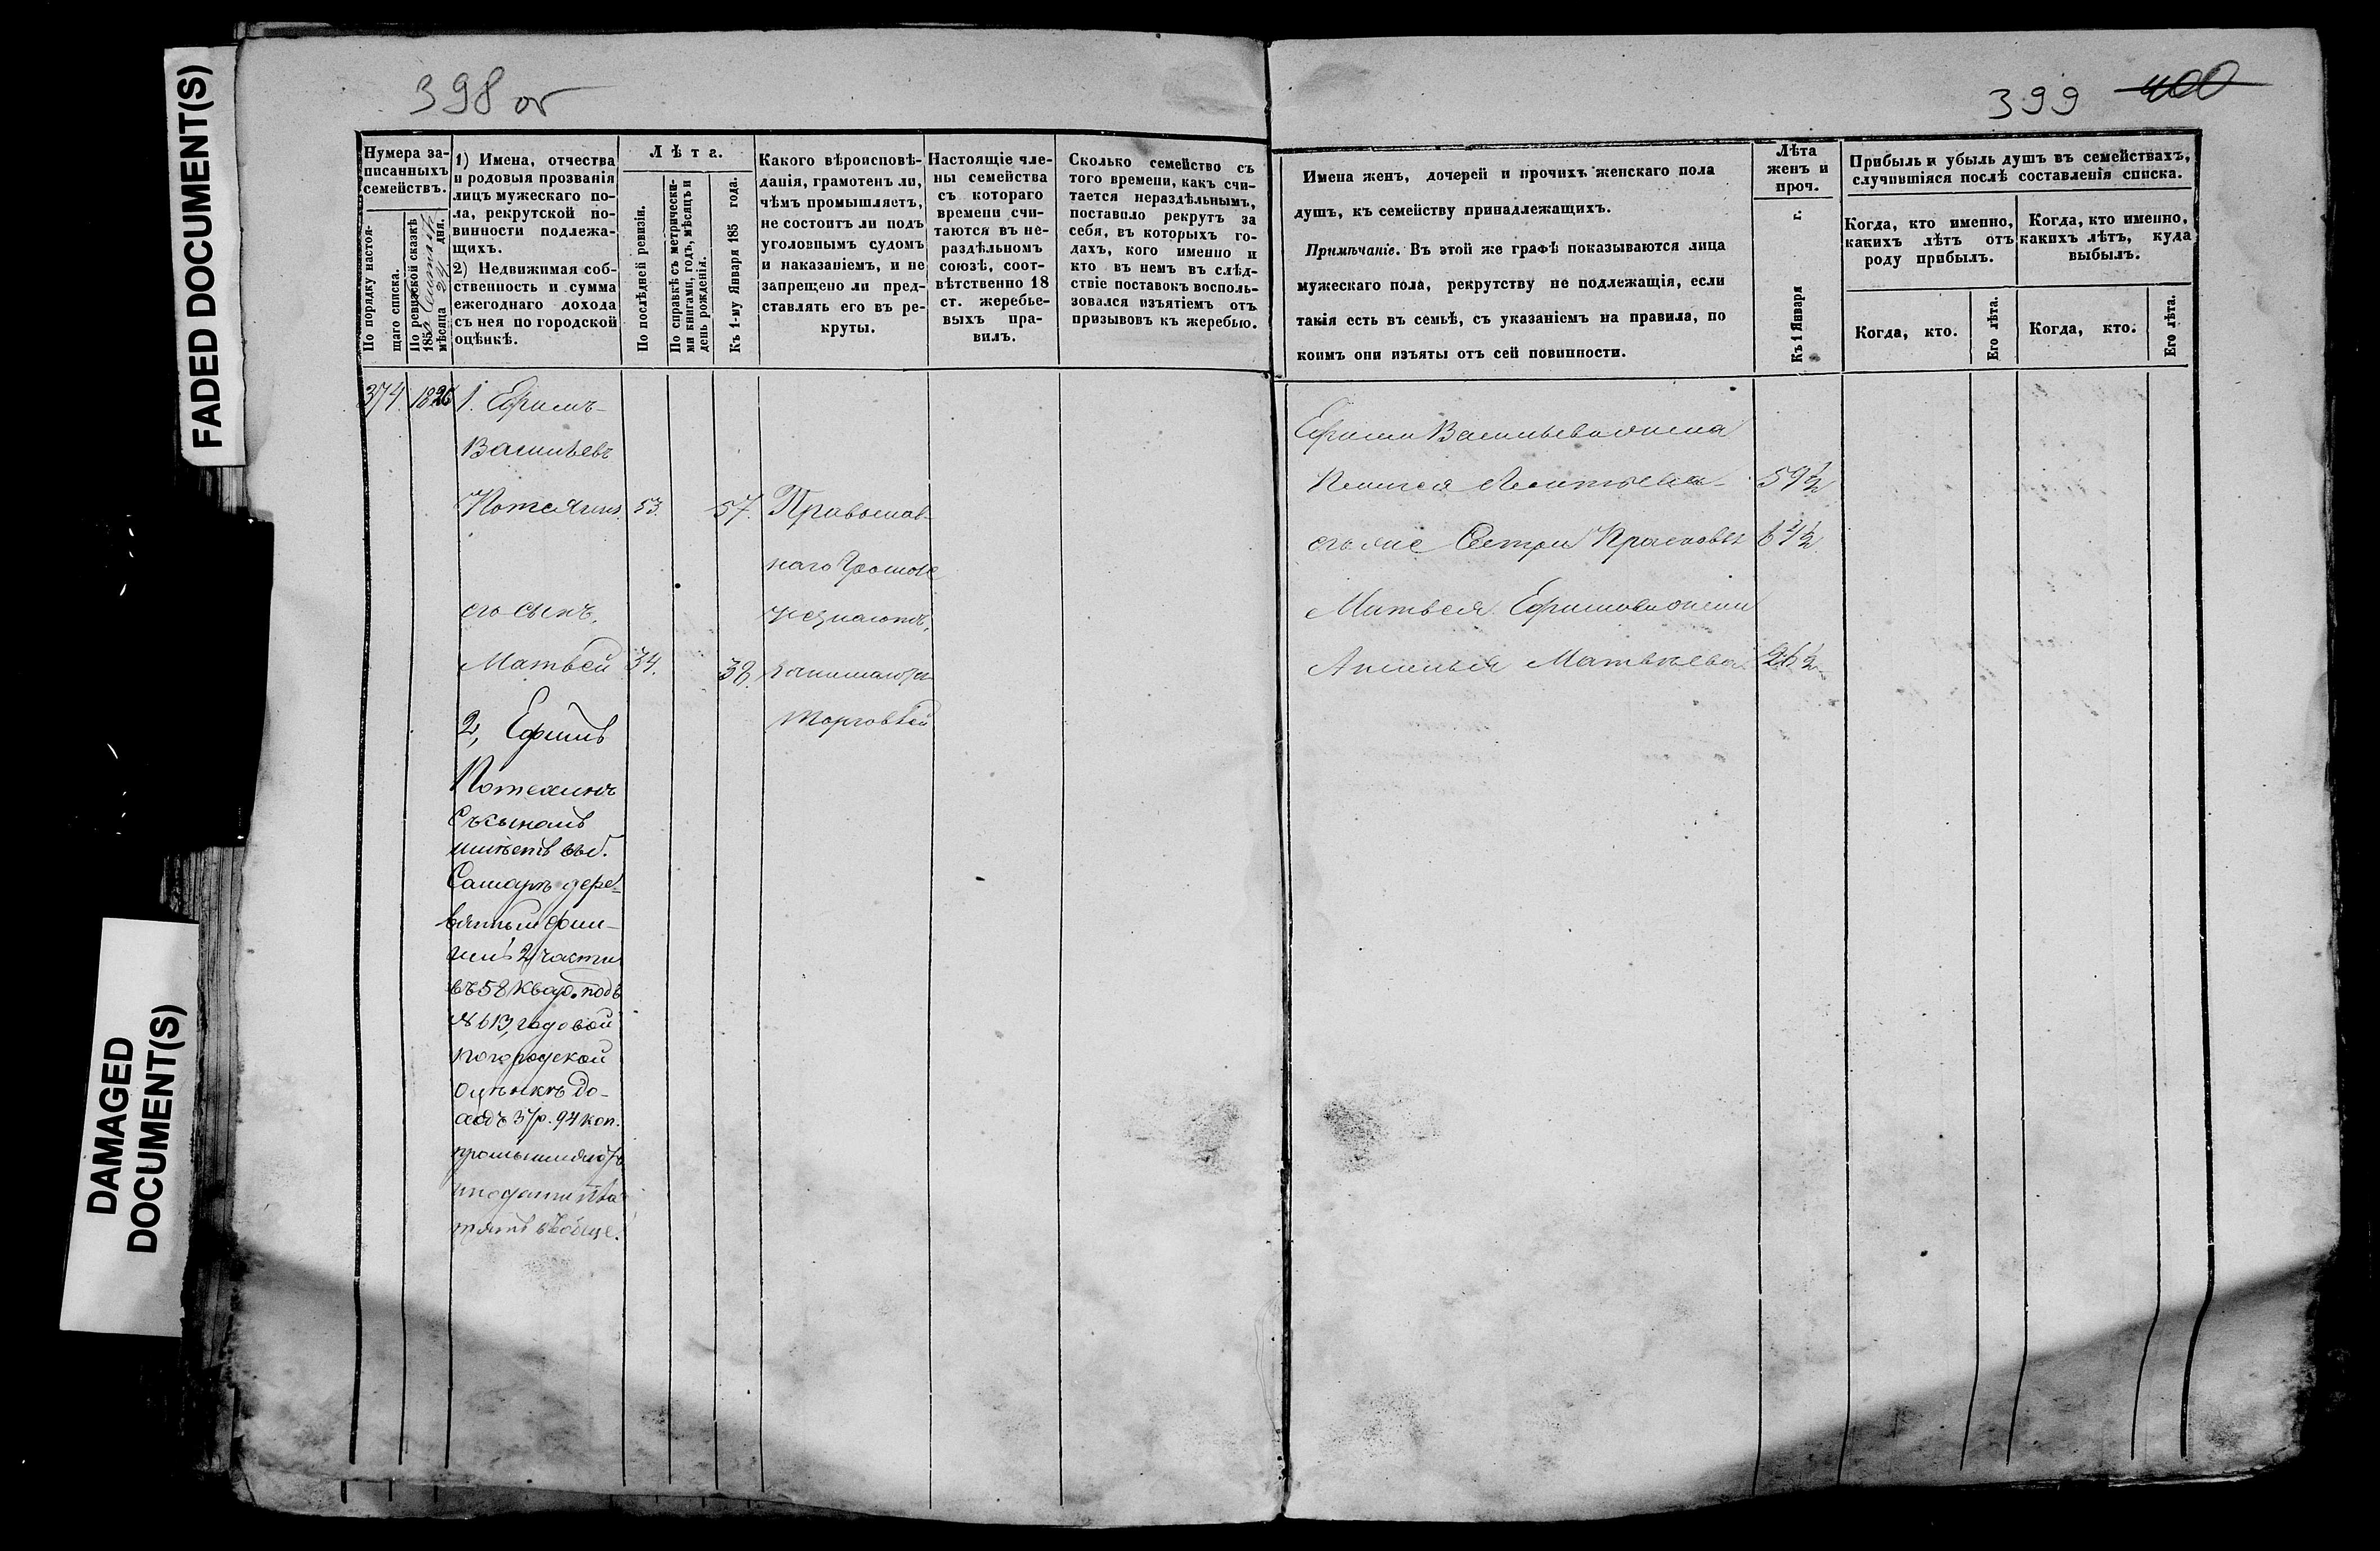 FADED DOCUMENT(S)
DAMAGED
DOCUMENT(S)
398 об
Нумера за-
писанныхъ
семействъ.
По порядку настоя-
щаго списка.
По ревизской сказкѣ
185
мѣсяца 24 дня.
1) Имена, отчества
и родовыя прозванія
лицъ мужескаго по-
ла, рекрутской по-
винности подлежа-
щихъ.
2) Недвижимая соб-
ственность и сумма
ежегоднаго дохода
съ нея по городской
оцѣнкѣ.
Лѣта.
По послѣдней ревизіи.
По справкѣ съ метрически-
ми книгами, годъ, мѣсяцъ и
день рожденія.
Къ 1-му Января 185 года.
Какого вѣроисповѣ-
данія, грамотенъ ли,
чѣмъ промышляетъ,
не состоитъ ли подъ
уголовнымъ судомъ
и наказаніемъ, и не
запрещено ли пред-
ставлять его въ ре-
круты.
Настоящіе чле-
ны семейства
съ котораго
времени счи-
таются въ не-
раздѣльномъ
союзѣ, соот-
вѣтственно 18
ст. жеребье-
выхъ пра-
вилъ.
Сколько семейство съ
того времени, какъ счи-
тается нераздѣльнымъ,
поставило рекрутъ за
себя, въ которыхъ го-
дахъ, кого именно и
кто въ немъ въ слѣд-
ствіе поставокъ восполь-
зовался изъятіемъ отъ
призывовъ къ жеребью.
374. 1826 1. Ефимъ
Васильевъ
Потехинъ 53. 57. Православ-
наго Грамоте
его сынъ, незнаютъ,
Матвей 34. 38. занимаются
торговлей
2, Ефимъ
Потехинъ
Съ сыномъ
имѣетъ въ г.
Самарѣ дере-
вянный фли-
гель 2 части
въ 58 квар. подъ
№ 613, годовой
по городской
оцѣнкѣ до-
ходъ 37р. 94 коп.
промышляютъ
и подати пла-
тятъ вобще.
399 400
Имена женъ, дочерей и прочихъ женскаго пола
душъ, къ семейству принадлежащихъ.
Примѣчаніе. Въ этой же графѣ показываются лица
мужескаго пола, рекрутству не подлежащія, если
такія есть въ семьѣ, съ указаніемъ на правила, по
коимъ они изъяты отъ сей повинности.
Лѣта
женъ и
проч.
Къ 1 Января г.
Прибыль и убыль душъ въ семействахъ,
случившіяся послѣ составленія списка.
Когда, кто именно,
какихъ лѣтъ отъ
роду прибылъ.
Когда, кто именно,
какихъ лѣтъ, куда
выбылъ.
Когда, кто.
Его лѣта.
Когда, кто.
Его лѣта.
Ефима Васильева жена
Пелагея Леонтьева 59½
его же Сестра Прасковья 64½
Матвея Ефимова жена
Аксинья Матвѣева 26½